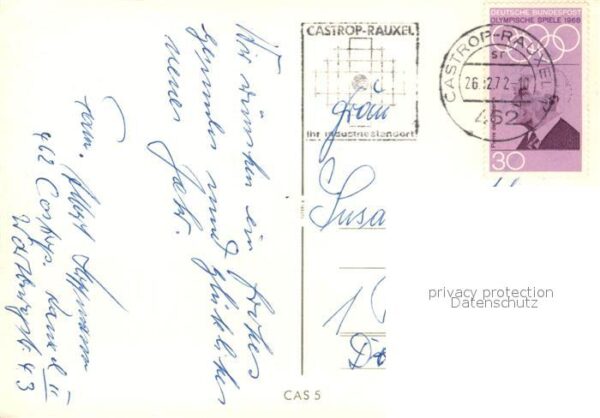 Wir wünschen ein frohes
gesundes und glückliches
neues Jahr.
Fam. Albert
462 Castrop. Rauxel II
43
CASTROP-RAUXEL
Ihr Industriestandort
CASTROP-RAUXEL
26.12.72
462
DEUTSCHE BUNDESPOST
OLYMPISCHE SPIELE 1968
30
Susa
1
privacy protection
Datenschutz
CAS 5